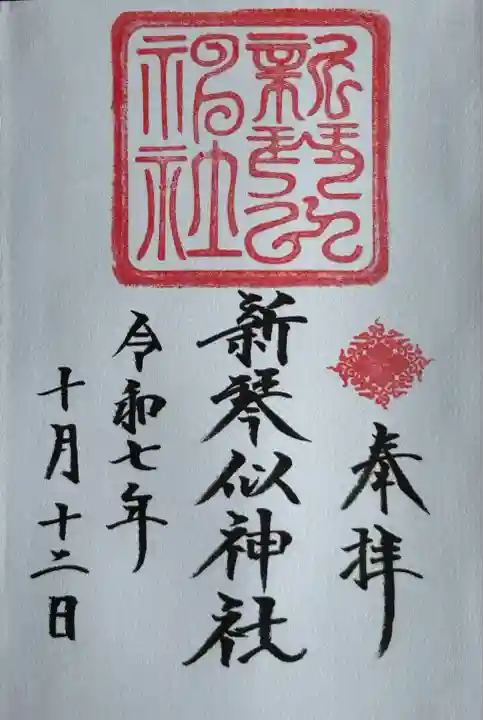 新琴似
神社
奉拝
新琴似神社
令和七年
十月十二日